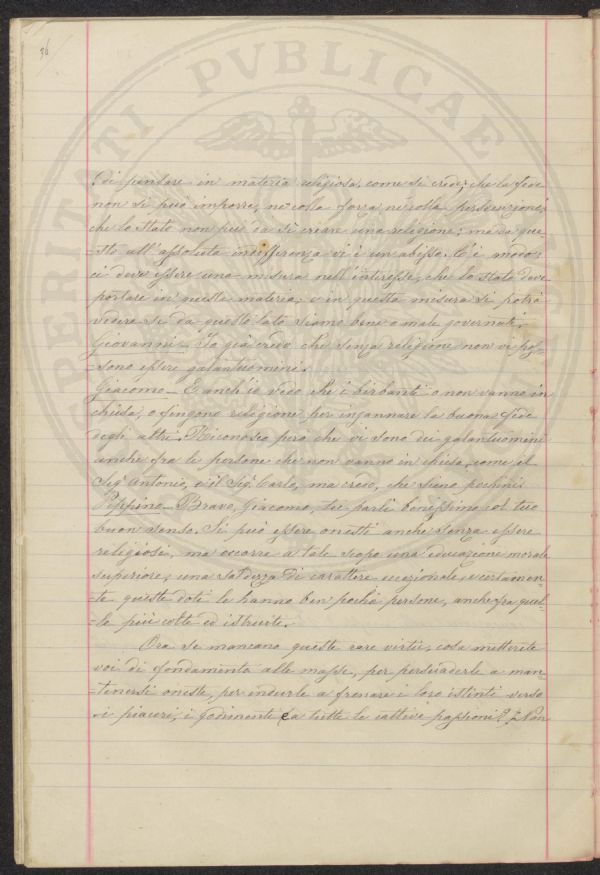 36
PROSPERITATI PVBLICAE
di pensare in materia religiosa, come si crede; che la fede
non si può imporre, nè colla forza nè colla persecuzione;
che lo Stato non può da sè creare una religione; ma da que-
-sto all'assoluta indifferenza vi è un abisso. C'è modo:
ci deve essere una misura nell'interesse, che lo Stato deve
portare in queste materia; e in questa misura si potrà
vedere se da questo lato siamo bene o male governati.
Giovanni_ Io già credo che senza religione non vi pos-
-sono essere galantuomini.
Giacomo_ E anch'io vedo che i birbanti o non vanno in
chiesa, o fingono religione per ingannare la buona fede
degli altri. Riconosco però che vi sono dei galantuomini
anche fra le persone che non vanno in chiesa, come il
Sig.r Antonio, o il Sig. Carlo, ma credo, che sieno pochini
Peppino_ Bravo, Giacomo, tu parli benissimo col tuo
buon senso. Si può essere onesti anche senza essere
religiosi, ma occorre a tale scopo una educazione morale
superiore; una saldezza di carattere eccezionale, e certamen-
-te queste doti le hanno ben poche persone, anche fra quel-
-le più colte ed istruite.
Ora se mancano queste rare virtù, cosa metterete
voi di fondamento alle masse, per persuaderle a man-
-tenersi oneste, per indurle a frenare i loro istinti verso
i piaceri, i godimenti e a tutte le cattive passioni? Non